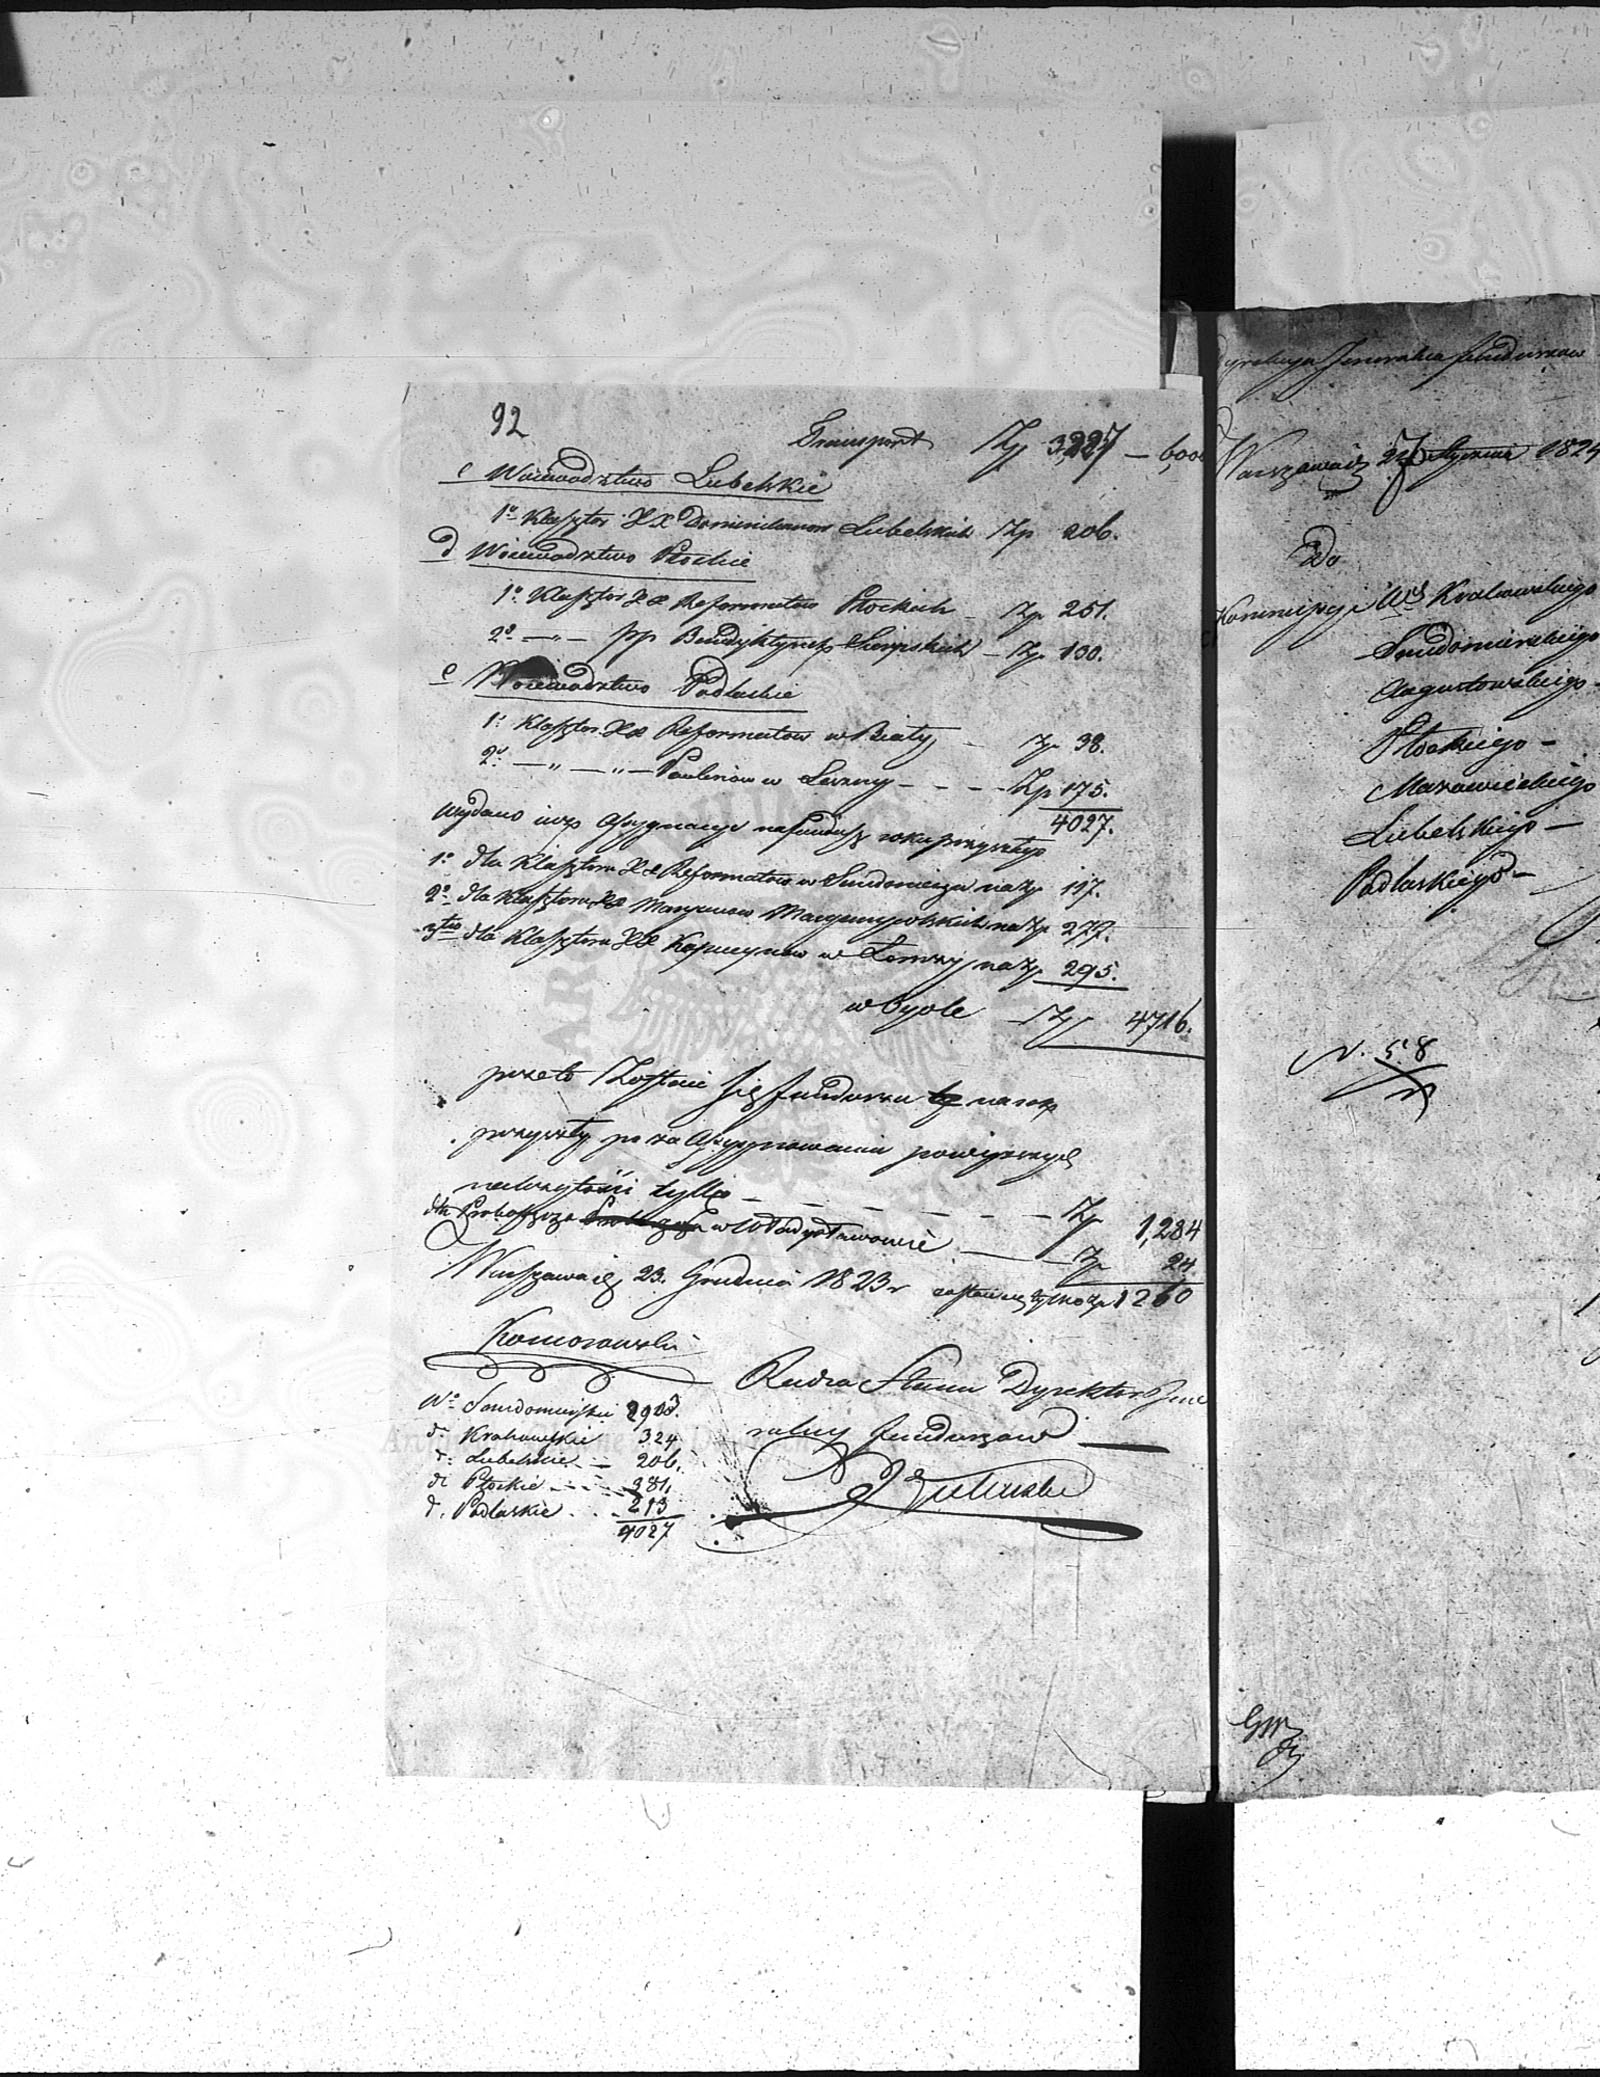 92
Transport Zp 3,227 — 6,000
c Woiewodztwo Lubelskie
1º Klasztor XX Dominikanow Lubelskich Zp 206.
d Woiewodztwo Płockie
1º Klasztor XX Reformatow Płockich — Zp 251.
2º —„— pp Benedyktynek Sierpskich — Zp 130.
e Woiewodztwo Podlaskie
1º Klasztor XX Reformatow w Biały — Zp 38.
2º —„— —„— Paulinow w Leśny — — — Zp 175.
4027.
Wydano assygnacye na fundusz roku przyszłego
1º dla Klasztoru XX Reformatow w Sandomierzu na Zp 117.
2º dla Klasztoru XX Maryanow Maryampolskich na Zp 277.
3tio dla Klasztoru XX Kapucynow w Łomży na Zp 295.
w Ogole Zp 4716.
przeto Zostaie się funduszu na rok
przyszły po za Assygnowaniu powyższych
należytości tylko — — — — — — Zp 1,284
dla Proboszcza w Władysławowie — Zp 24
Warszawa d. 23. Grudnia 1823 r zostaie tylko Zp 1260
Komorowski
Radca Stanu Dyrektor Jene
ralny Funduszow —
Wo Sandomirskie 2903.
do Krakowskie 324
do Lubelskie — 206.
do Płockie — 381.
do Podlaskie . . . 213
4027
Dyrekcya Jeneralna funduszow
Warszawa d. Stycznia 1824
Do
Kommissyi Wd Krakowskiego
Sandomirskiego
Augustowskiego —
Płockiego —
Mazowieckiego
Lubelskiego —
Podlaskiego —
N. 58